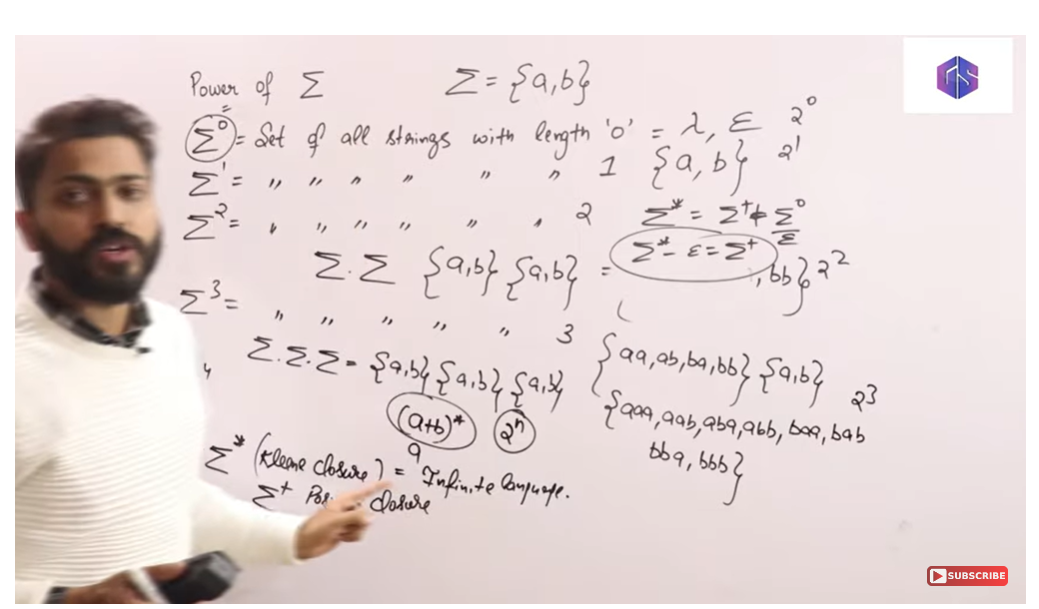 Power of Σ Σ = {a,b}
Σ⁰ = Set of all strings with length '0' = λ, ε 2⁰
Σ¹ = " " " " " " 1 {a, b} 2¹
Σ² = " " " " " " 2
Σ* = Σ⁺ + Σ⁰
ε
Σ* - ε = Σ⁺
Σ.Σ {a,b} {a,b} = , bb} 2²
Σ³ = " " " " " 3
Σ.Σ.Σ = {a,b} {a,b} {a,b}
{aa,ab,ba,bb} {a,b} 2³
{aaa,aab,aba,abb,baa,bab
bba,bbb}
4
(a+b)* 2ⁿ
a
Σ* (Kleene closure) = Infinite language.
Σ⁺ closure
SUBSCRIBE